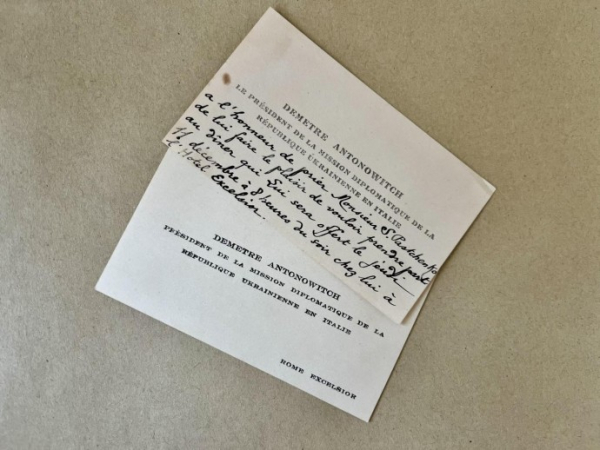 DEMETRE ANTONOWITCH
LE PRÉSIDENT DE LA MISSION DIPLOMATIQUE DE LA
RÉPUBLIQUE UKRAINIENNE EN ITALIE
a l'honneur de prier Monsieur S. Pastchenko
de lui faire le plaisir de vouloir prendre part
au dîner qui Lui sera offert le jeudi
11 décembre à 8 heures du soir chez lui à
l'Hotel Excelsior.
DEMETRE ANTONOWITCH
PRÉSIDENT DE LA MISSION DIPLOMATIQUE DE LA
RÉPUBLIQUE UKRAINIENNE EN ITALIE
ROME EXCELSIOR